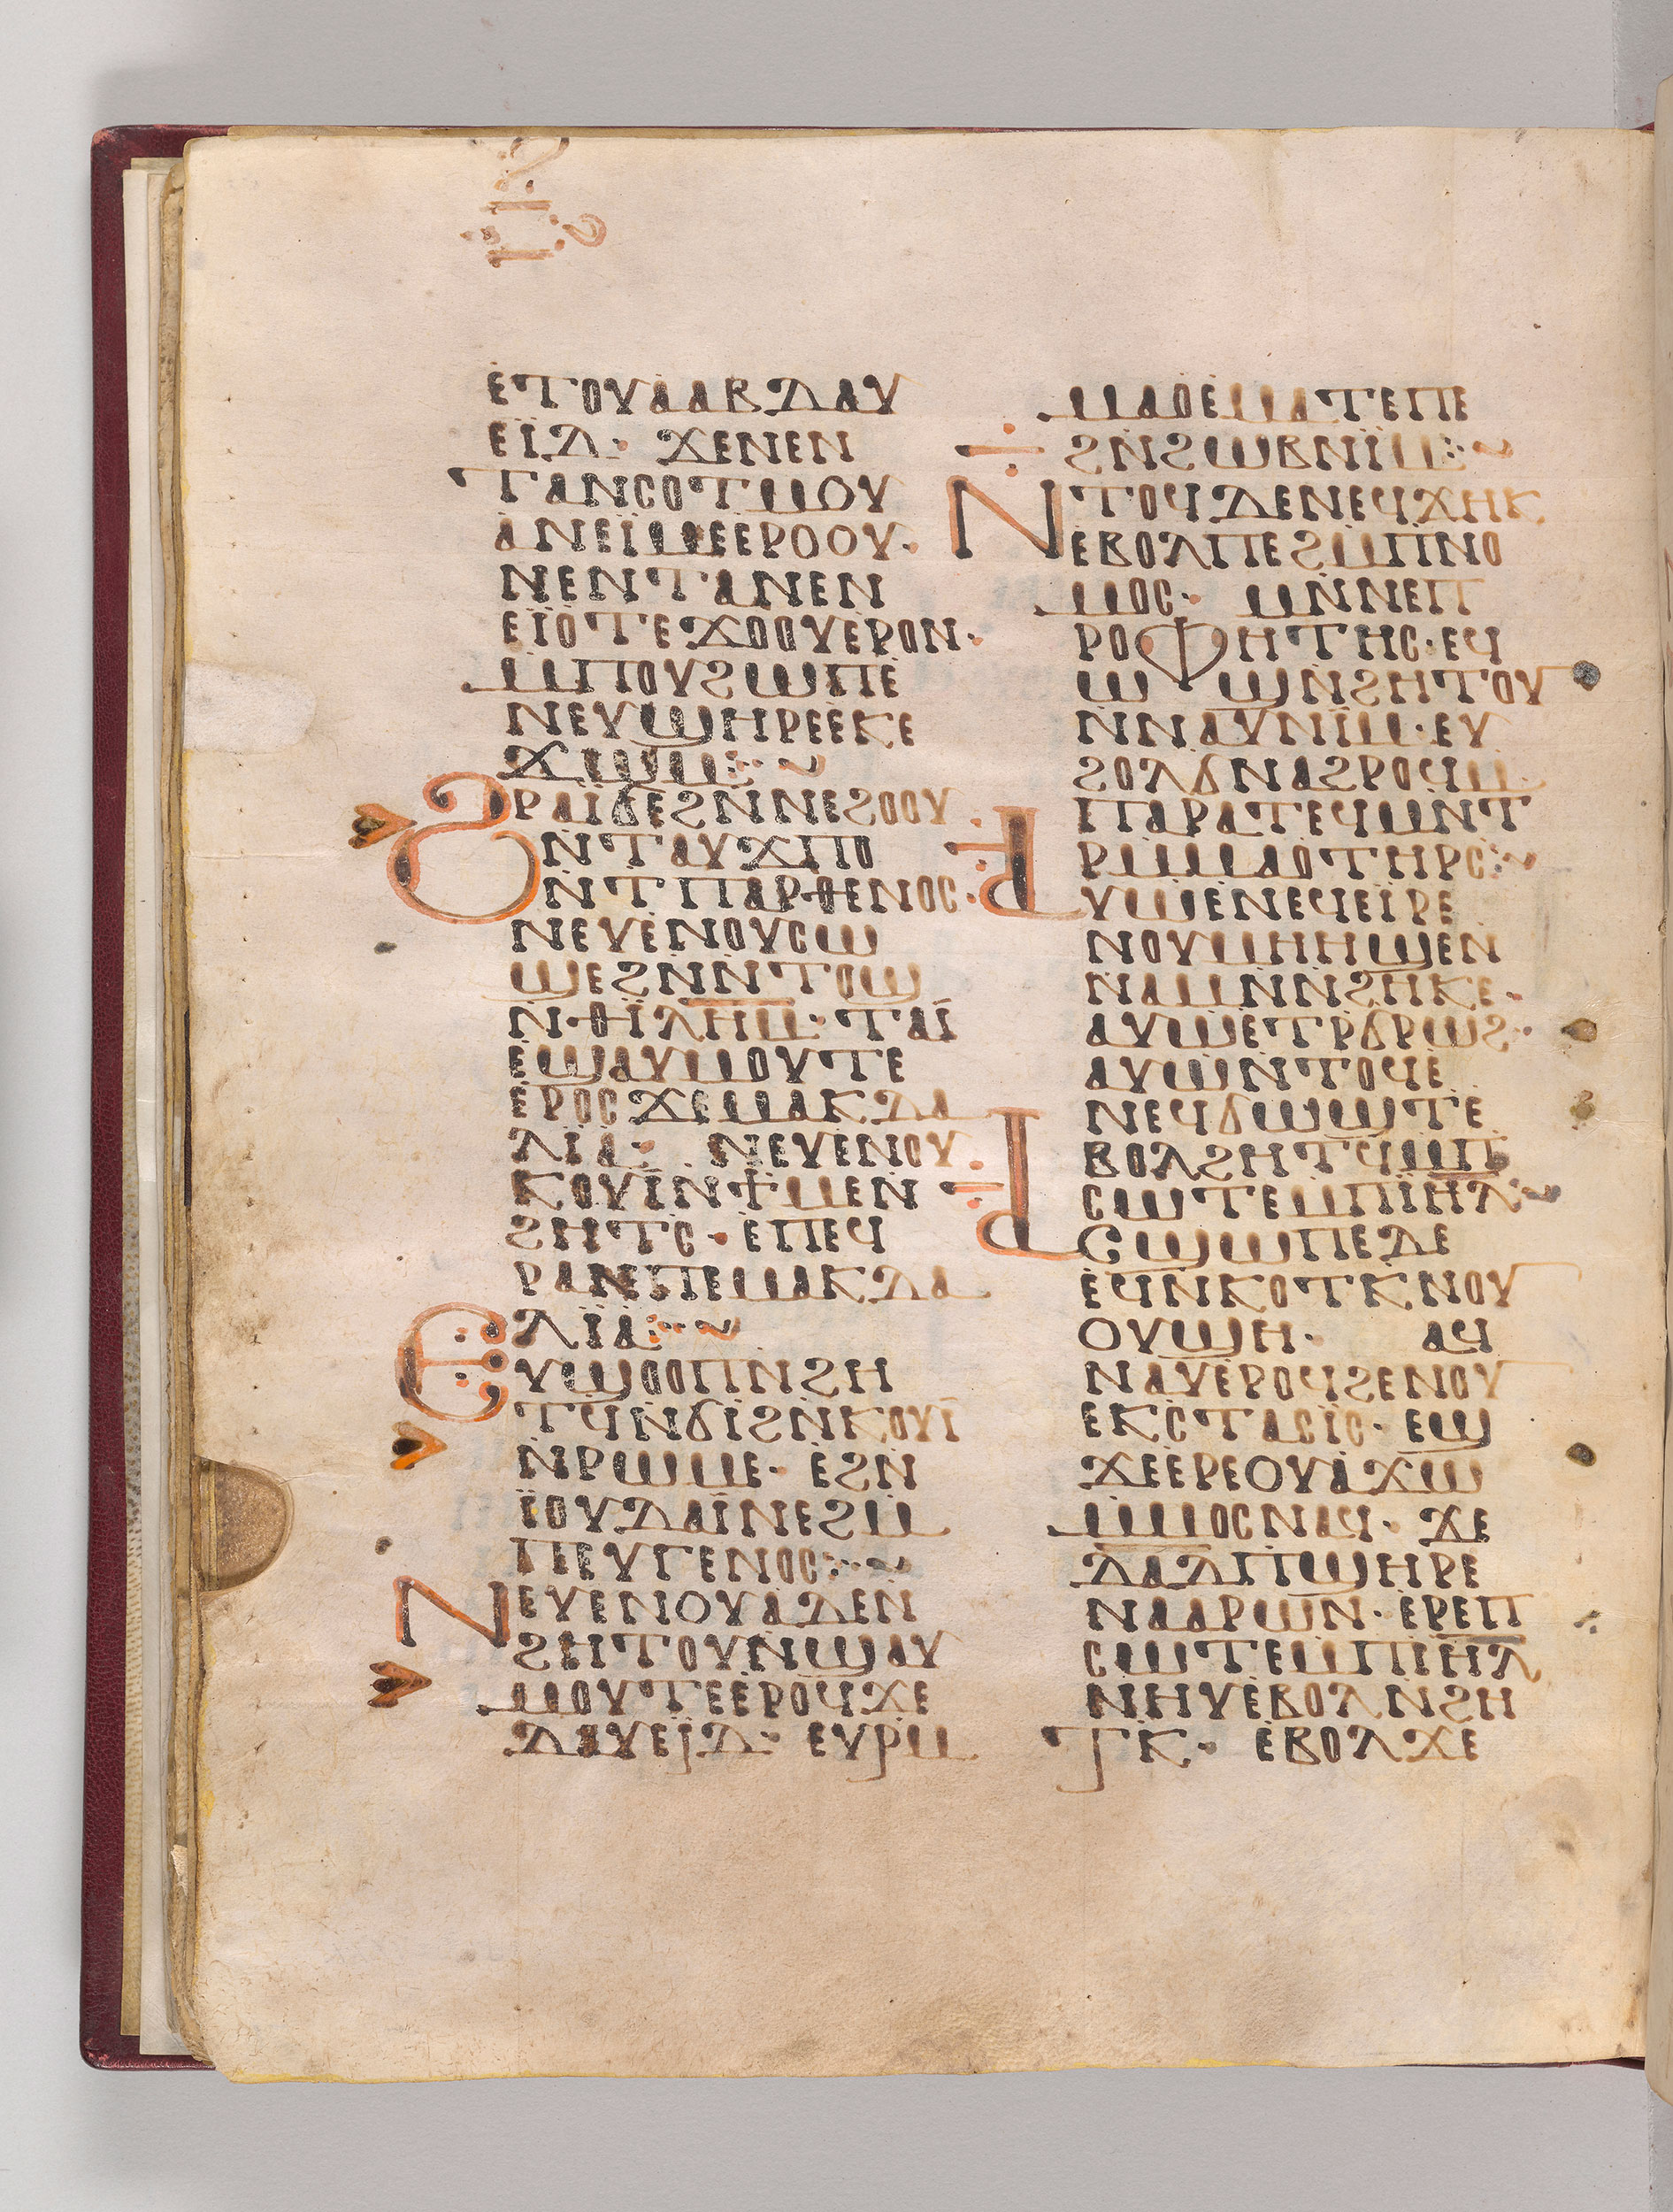 ⲉⲧⲟⲩⲁⲁⲃ ⲇⲁⲩ
ⲉⲓ̈ⲇ· ϫⲉⲛⲉⲛ
ⲧⲁⲛⲥⲟⲧⲙⲟⲩ
ⲁⲛⲉⲓ̈ⲙⲉⲉⲣⲟⲟⲩ·
ⲛⲉⲛⲧⲁⲛⲉⲛ
ⲉⲓ̈ⲟⲧⲉϫⲟⲟⲩⲉⲣⲟⲛ·
ⲙⲡⲟⲩϩⲱⲡⲉ
ⲛⲉⲩϣⲏⲣⲉⲉⲕⲉ
ϫⲱⲙ:~
ϩⲣⲁⲓ̈ϭⲉϩⲛⲛⲉϩⲟⲟⲩ
ⲛⲧⲁⲩϫⲡⲟ
ⲛⲧⲡⲁⲣⲑⲉⲛⲟⲥ·
ⲛⲉⲩⲉⲛⲟⲩⲥⲱ
ϣⲉϩⲛⲛⲧⲟϣ
ⲛ·ⲑⲓ̈ⲗ̅ⲏ̅ⲙ̅· ⲧⲁⲓ̈
ⲉϣⲁⲩⲙⲟⲩⲧⲉ
ⲉⲣⲟⲥϫⲉⲙⲁⲕⲇⲁ
ⲗⲓ̈ⲁ· ⲛⲉⲩⲉⲛⲟⲩ
ⲕⲟⲩⲓ̈ⲛϯⲙⲉⲛ
ϩⲏⲧⲥ· ⲉⲡⲉϥ
ⲣⲁⲛⲡⲉⲙⲁⲕⲇⲁ
ⲗⲓ̈ⲁ:~
ⲉⲩϣⲟⲟⲡⲛϩⲏ
ⲧϥⲛϭⲓϩⲛⲕⲟⲩⲓ̈
ⲛⲣⲱⲙⲉ· ⲉϩⲛ
ⲓ̈ⲟⲩⲇⲁⲓ̈ⲛⲉϩⲙ
ⲡⲉⲩⲅⲉⲛⲟⲥ:~
ⲛⲉⲩⲉⲛⲟⲩⲁⲇⲉⲛ
ϩⲏⲧⲟⲩⲛϣⲁⲩ
ⲙⲟⲩⲧⲉⲉⲣⲟϥϫⲉ
ⲇⲁⲩⲉⲓ̈ⲇ· ⲉⲩⲣⲙ
ⲙⲁⲟⲉⲙⲁⲧⲉⲡⲉ
ϩⲛϩⲱⲃⲛⲓ̈ⲙ:~
ⲛⲧⲟϥⲇⲉⲛⲉϥϫⲏⲕ
ⲉⲃⲟⲗⲡⲉϩⲙⲡⲛⲟ
ⲙⲟⲥ· ⲙⲛⲛⲉⲡ
ⲣⲟⲫⲏⲧⲏⲥ·ⲉϥ
ⲱϣⲛϩⲏⲧⲟⲩ
ⲛⲛⲁⲩⲛⲓ̈ⲙ·ⲉⲩ
ϩⲟⲗϭⲛⲁϩⲣⲟϥⲙ
ⲡⲁⲣⲁⲧⲉϥⲙⲛⲧ
ⲣⲙⲙⲁⲟⲧⲏⲣⲥ:~
ⲁⲩⲱⲉⲛⲉϥⲉⲓ̈ⲣⲉ
ⲛⲟⲩⲙⲏⲏϣⲉⲛ
ⲛⲁⲙⲛⲛϩⲏⲕⲉ·
ⲁⲩⲱⲉⲧⲣϭⲣⲱϩ·
ⲁⲩⲱⲛⲧⲟϥⲉ
ⲛⲉϥϭⲱϣⲧⲉ
ⲃⲟⲗϩⲏⲧϥⲙⲡ
ⲥⲱⲧⲉⲙⲡⲓ̅ⲏ̅ⲗ̅~
ⲁⲥϣⲱⲡⲉⲇⲉ
ⲉϥⲛⲕⲟⲧⲕⲛⲟⲩ
ⲟⲩϣⲏ· ⲁϥ
ⲛⲁⲩⲉⲣⲟϥϩⲉⲛⲟⲩ
ⲉⲕⲥⲧⲁⲥⲓ̈ⲥ· ⲉϣ
ϫⲉⲉⲣⲉⲟⲩⲁϫⲱ
ⲙⲙⲟⲥⲛⲁϥ· ϫⲉ
ⲇ̅ⲁ̅ⲇ̅ⲡϣⲏⲣⲉ
ⲛⲁⲁⲣⲱⲛ·ⲉⲣⲉⲡ
ⲥⲱⲧⲉⲙⲡⲓ̅ⲏ̅ⲗ̅
ⲛⲏⲩⲉⲃⲟⲗⲛϩⲏ
ⲧⲕ· ⲉⲃⲟⲗϫⲉ